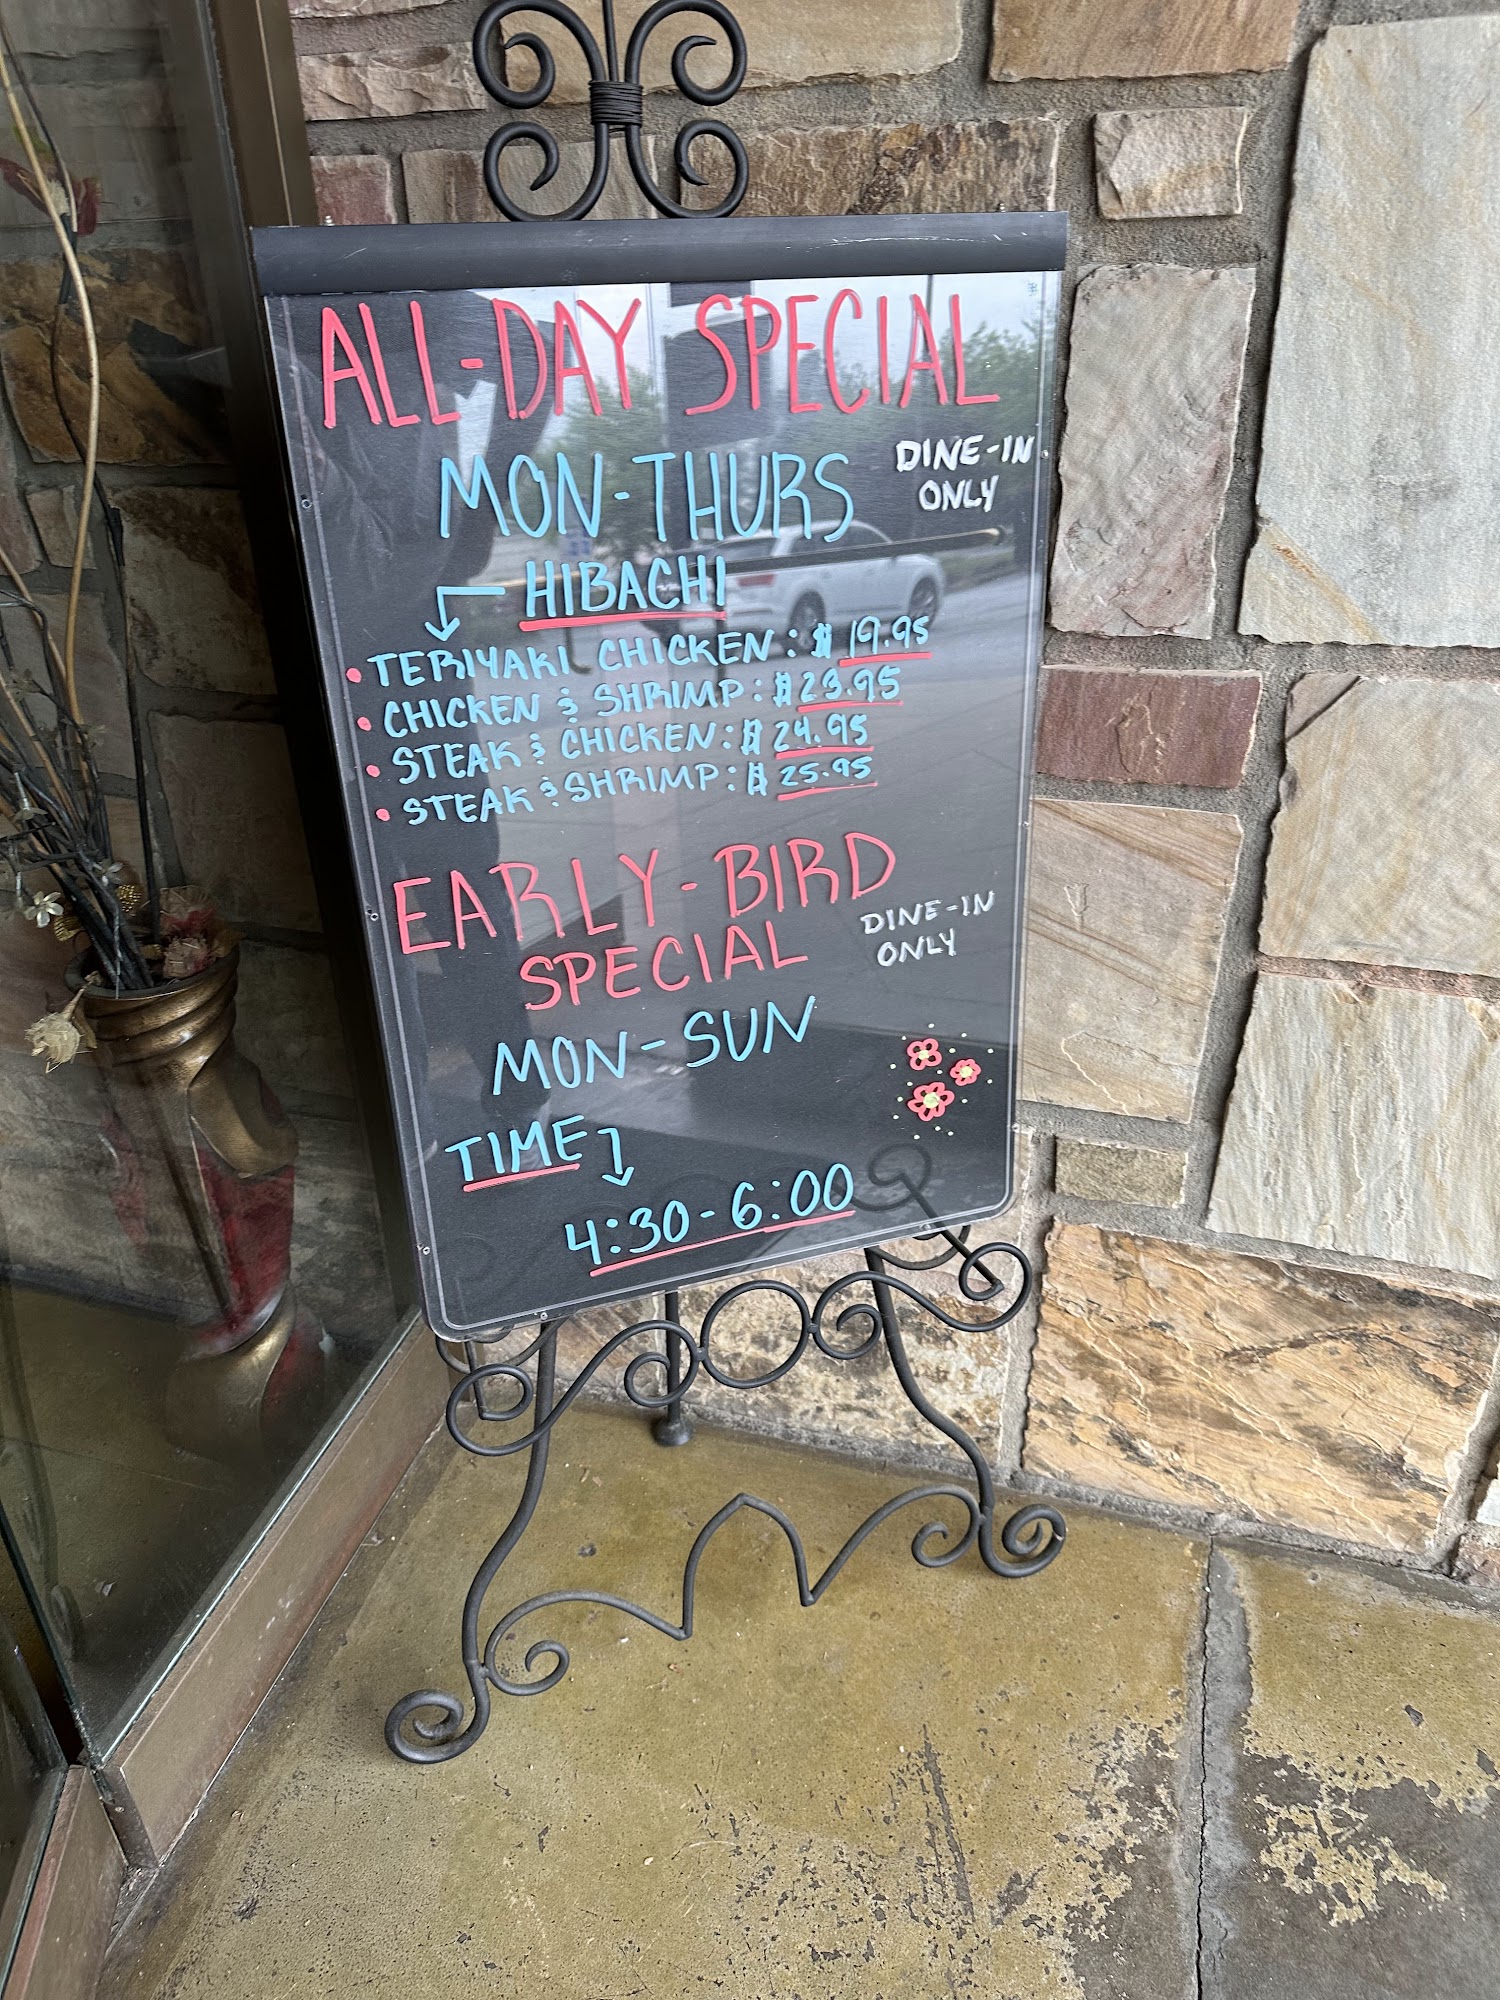 ALL-DAY SPECIAL
MON-THURS
DINE-IN
ONLY
HIBACHI
• TERIYAKI CHICKEN: $19.95
• CHICKEN & SHRIMP: $23.95
• STEAK & CHICKEN: $24.95
• STEAK & SHRIMP: $25.95
EARLY-BIRD
SPECIAL
DINE-IN
ONLY
MON-SUN
TIME
4:30-6:00